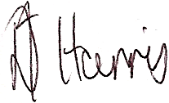 J Harris